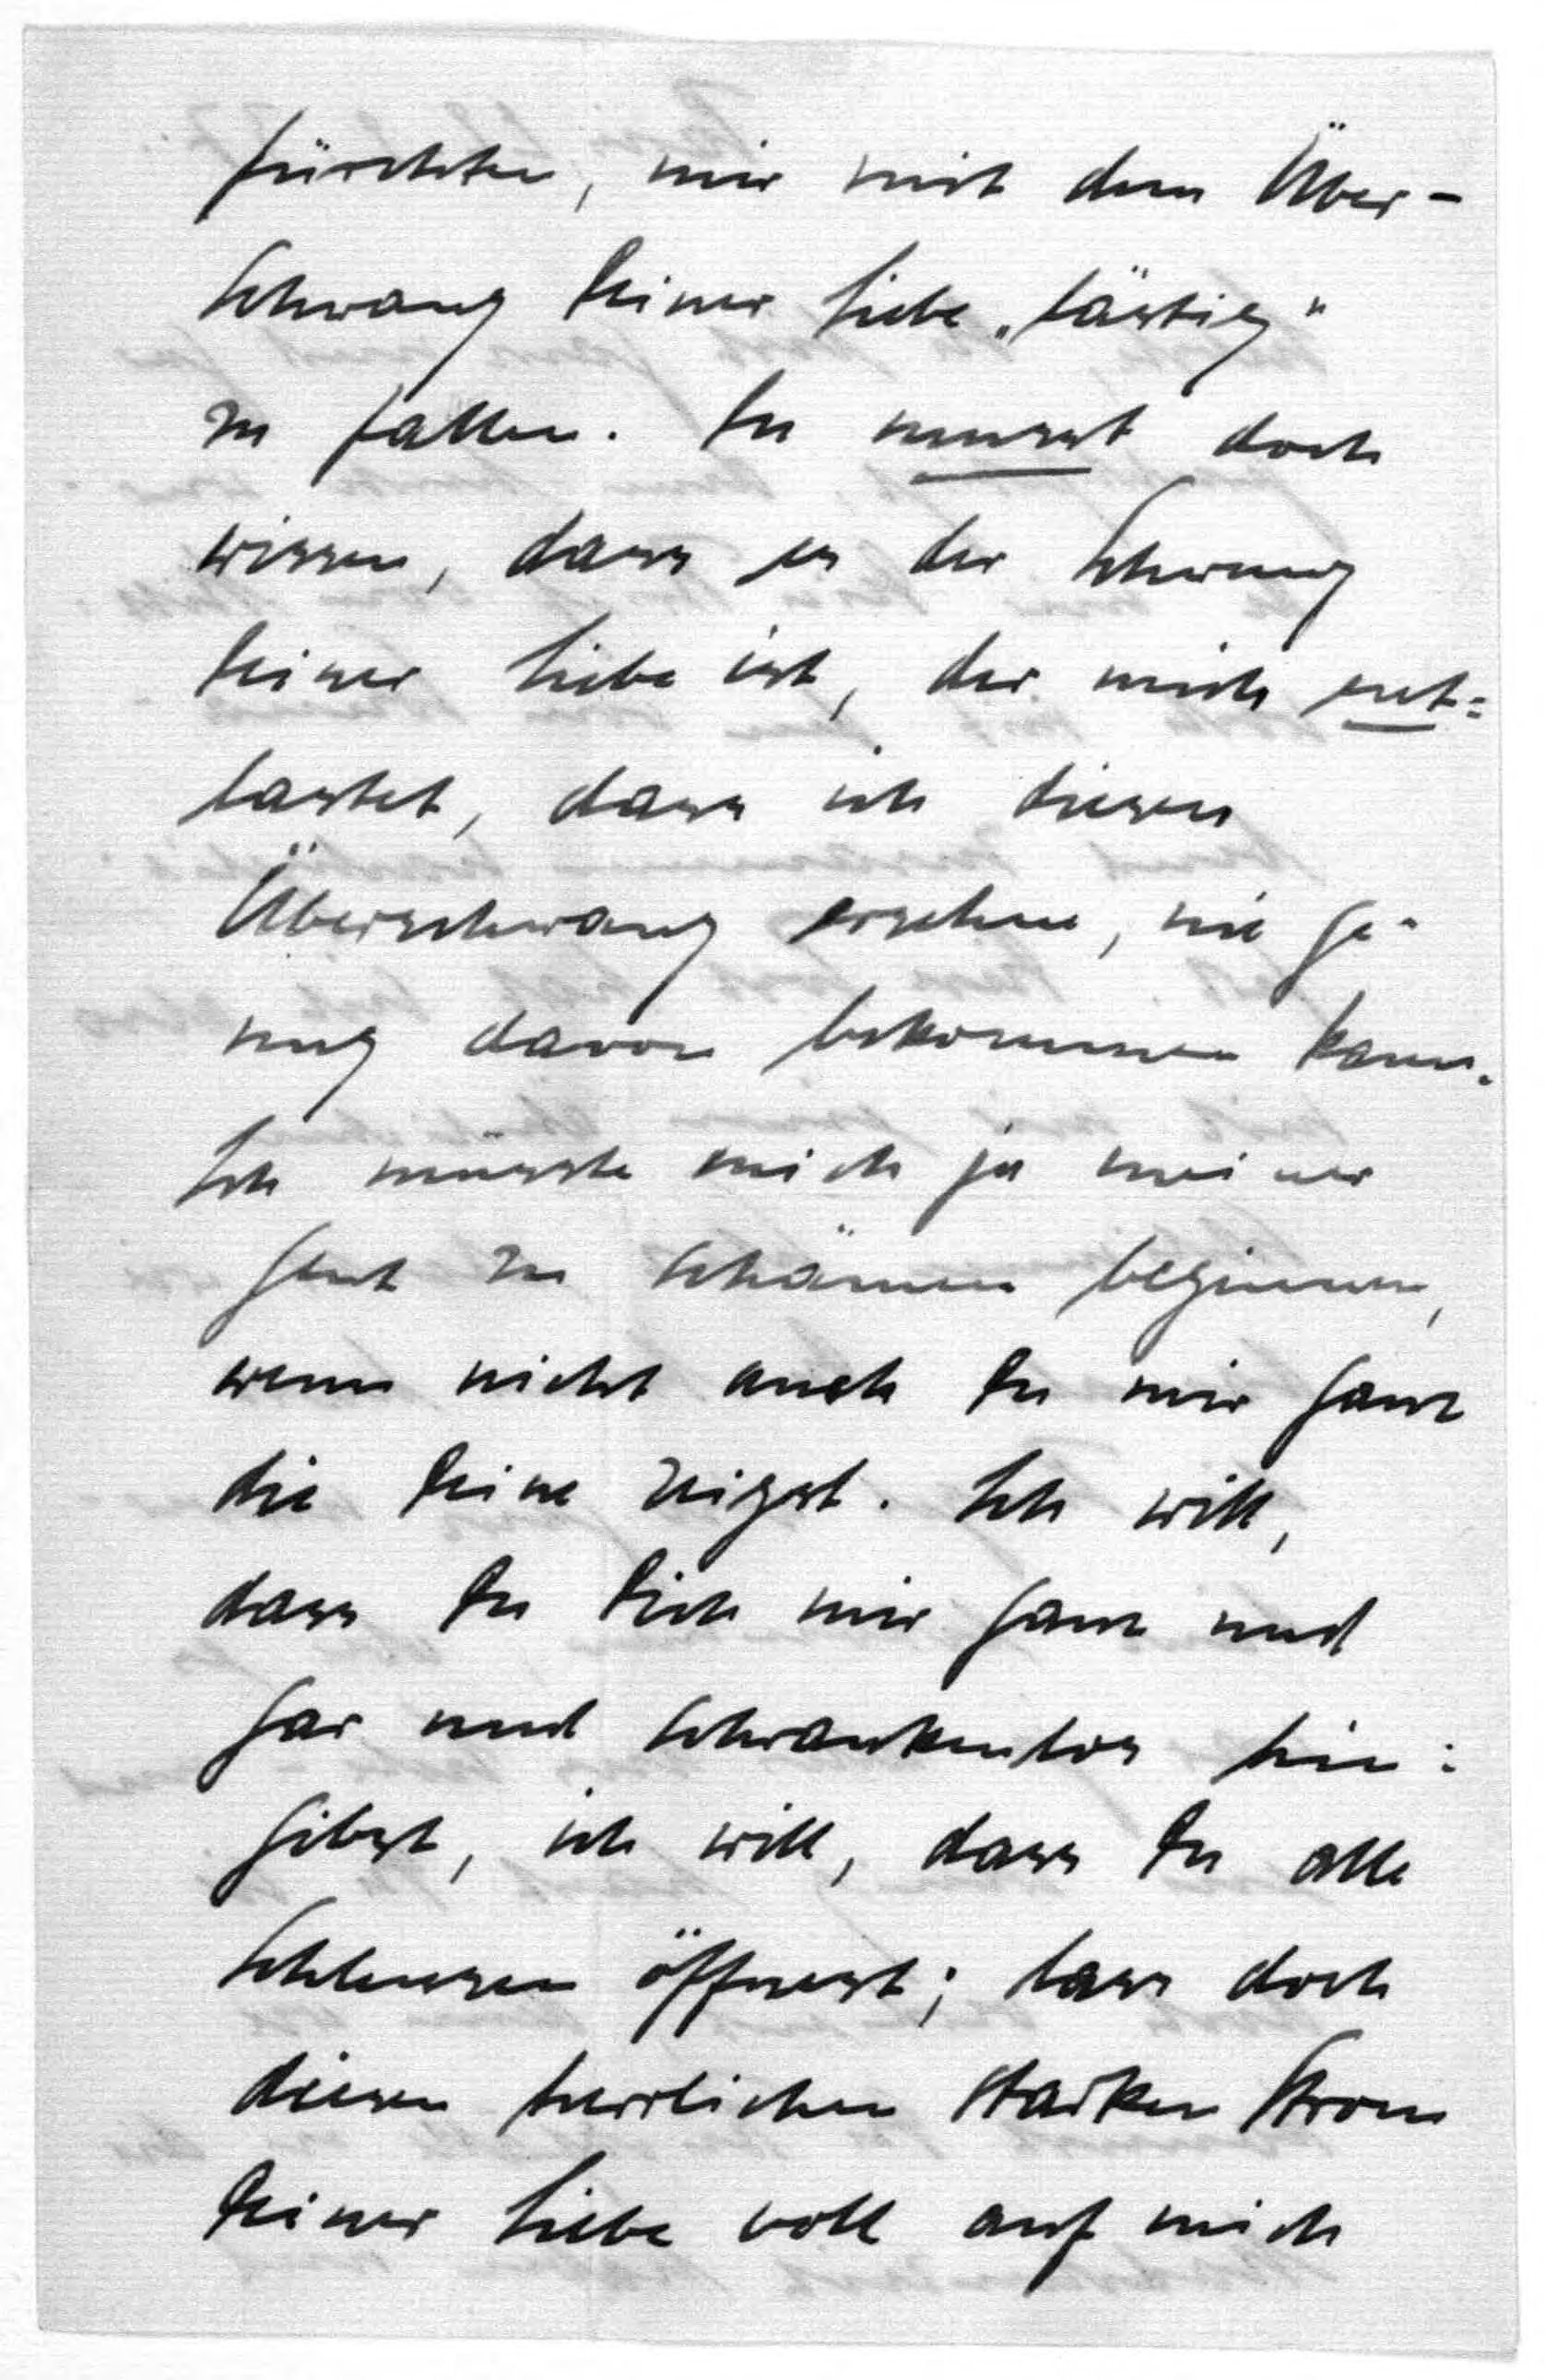 fürchten, mir mit dem Über-
schwang Deiner Liebe „lästig"
zu fallen. Du musst doch
wissen, dass es der Schwung
Deiner Liebe ist, der mich ent=
lastet, dass ich diesen
Überschwang ersehne, nie ge-
nug davon bekommen kann.
Ich müsste mich ja meiner
Glut zu schämen beginnen,
wenn nicht auch Du mir ganz
die Deine zeigst. Ich will,
dass Du Dich mir ganz und
gar und schrankenlos hin=
gibst, ich will, dass Du alle
Schleusen öffnest; lass doch
diesen herrlichen starken Strom
Deiner Liebe voll auf mich